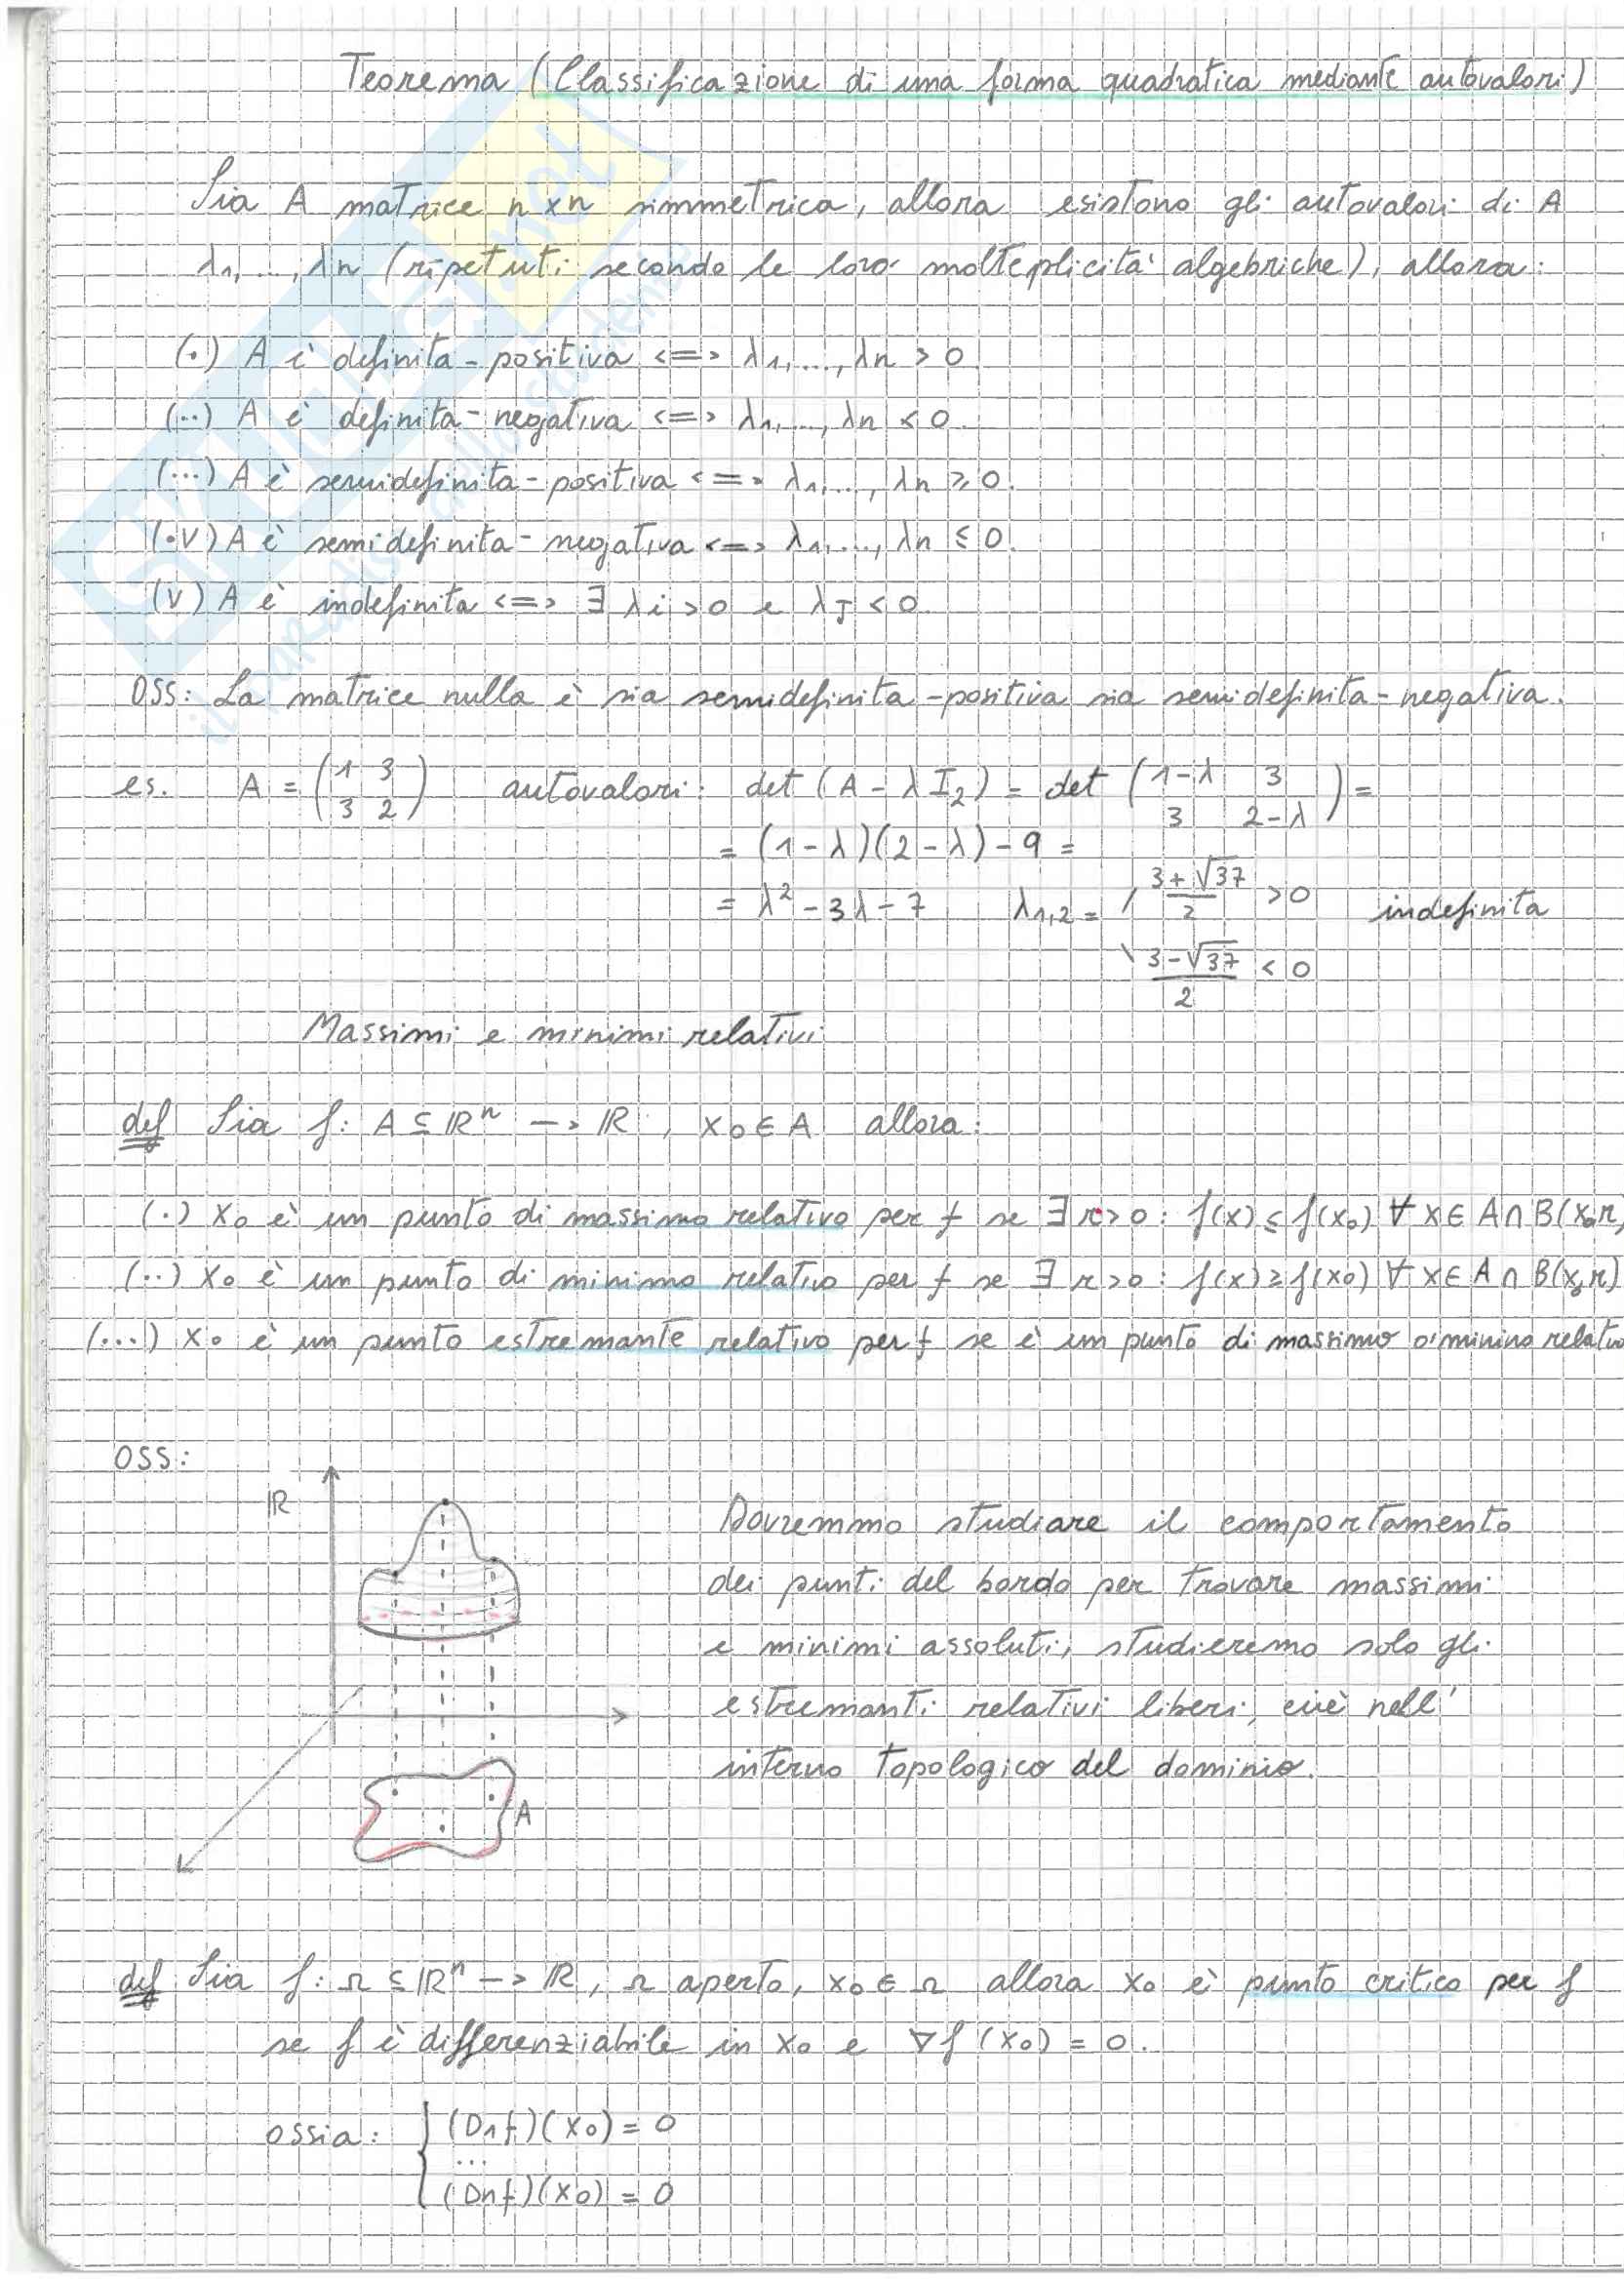 Teorema (Classificazione di una forma quadratica mediante autovalori)
Sia A matrice n×n simmetrica, allora esistono gli autovalori di A
λ1, ..., λn (ripetuti secondo le loro molteplicità algebriche), allora:
(·) A è definita-positiva <=> λ1, ..., λn > 0.
(··) A è definita-negativa <=> λ1, ..., λn < 0.
(···) A è semidefinita-positiva <=> λ1, ..., λn ≥ 0.
(·V) A è semidefinita-negativa <=> λ1, ..., λn ≤ 0.
(V) A è indefinita <=> ∃ λi > 0 e λJ < 0.
OSS: La matrice nulla è sia semidefinita-positiva sia semidefinita-negativa.
es. A = (1 3 / 3 2) autovalori: det (A - λI2) = det (1-λ 3 / 3 2-λ) =
= (1-λ)(2-λ) - 9 =
= λ² - 3λ - 7 λ1,2 = / (3+√37)/2 > 0 indefinita
\ (3-√37)/2 < 0
Massimi e minimi relativi
def Sia f: A ⊆ ℝⁿ -> ℝ, x0 ∈ A allora:
(·) x0 è un punto di massimo relativo per f se ∃ r>0 : f(x) ≤ f(x0) ∀ x ∈ A ∩ B(x0,r)
(··) x0 è un punto di minimo relativo per f se ∃ r>0 : f(x) ≥ f(x0) ∀ x ∈ A ∩ B(x0,r)
(···) x0 è un punto estremante relativo per f se è un punto di massimo o minino relativo
OSS:
ℝ
A
Dovremmo studiare il comportamento
dei punti del bordo per trovare massimi
e minimi assoluti, studieremo solo gli
estremanti relativi liberi, cioè nell'
interno topologico del dominio.
def Sia f: Ω ⊆ ℝⁿ -> ℝ, Ω aperto, x0 ∈ Ω allora x0 è punto critico per f
se f è differenziabile in x0 e ∇f(x0) = 0.
ossia: { (D1f)(x0) = 0
...
(Dnf)(x0) = 0
SKUOLA.net